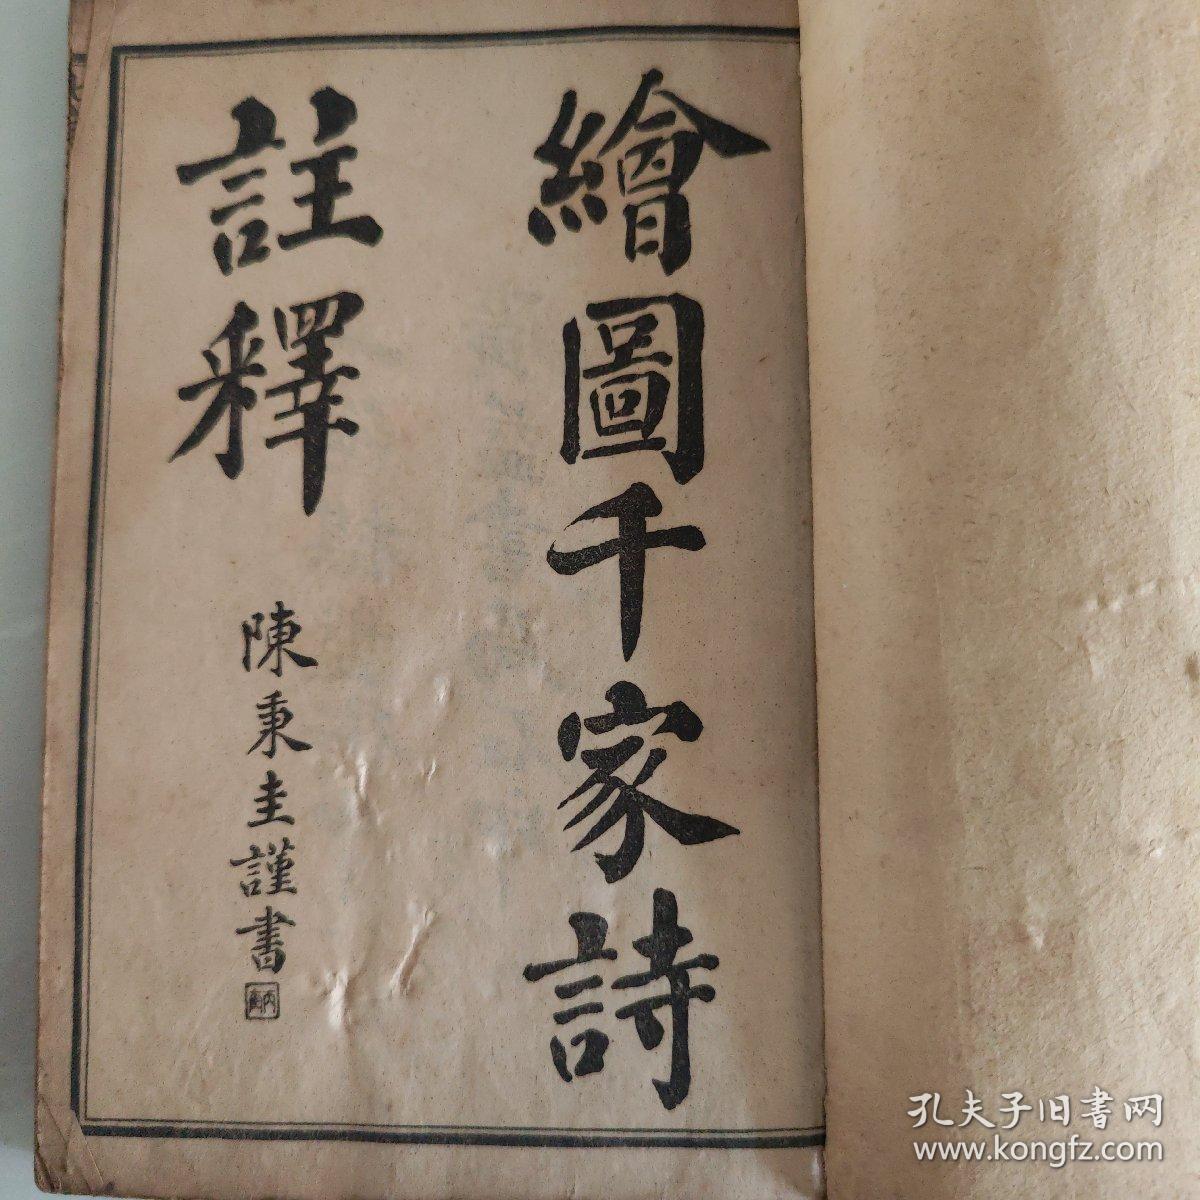 繪圖千家詩
註釋
陳秉圭謹書
孔夫子旧書网
www.kongfz.com